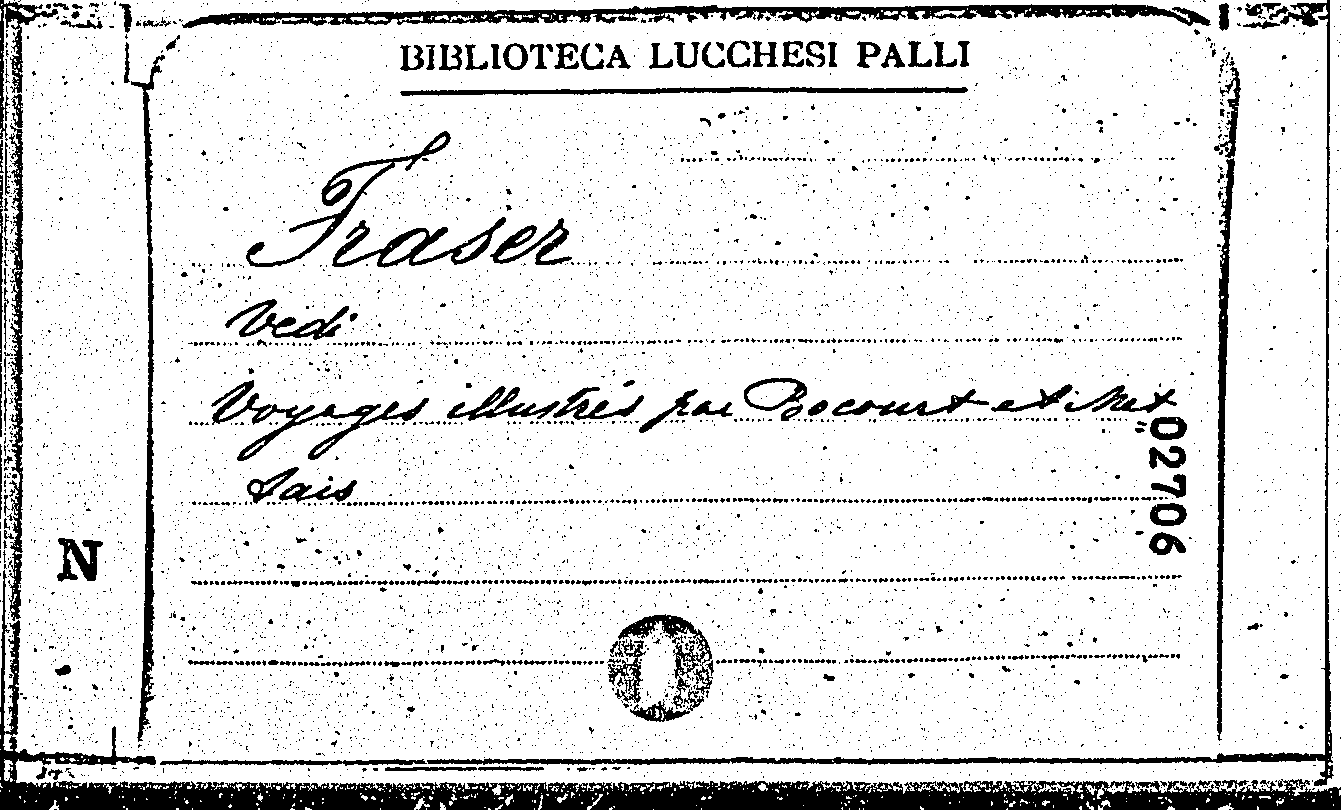 BIBLIOTECA LUCCHESI PALLI
Fraser
Vedi
Voyages illustrés par Bocourt et
tais
02706
N